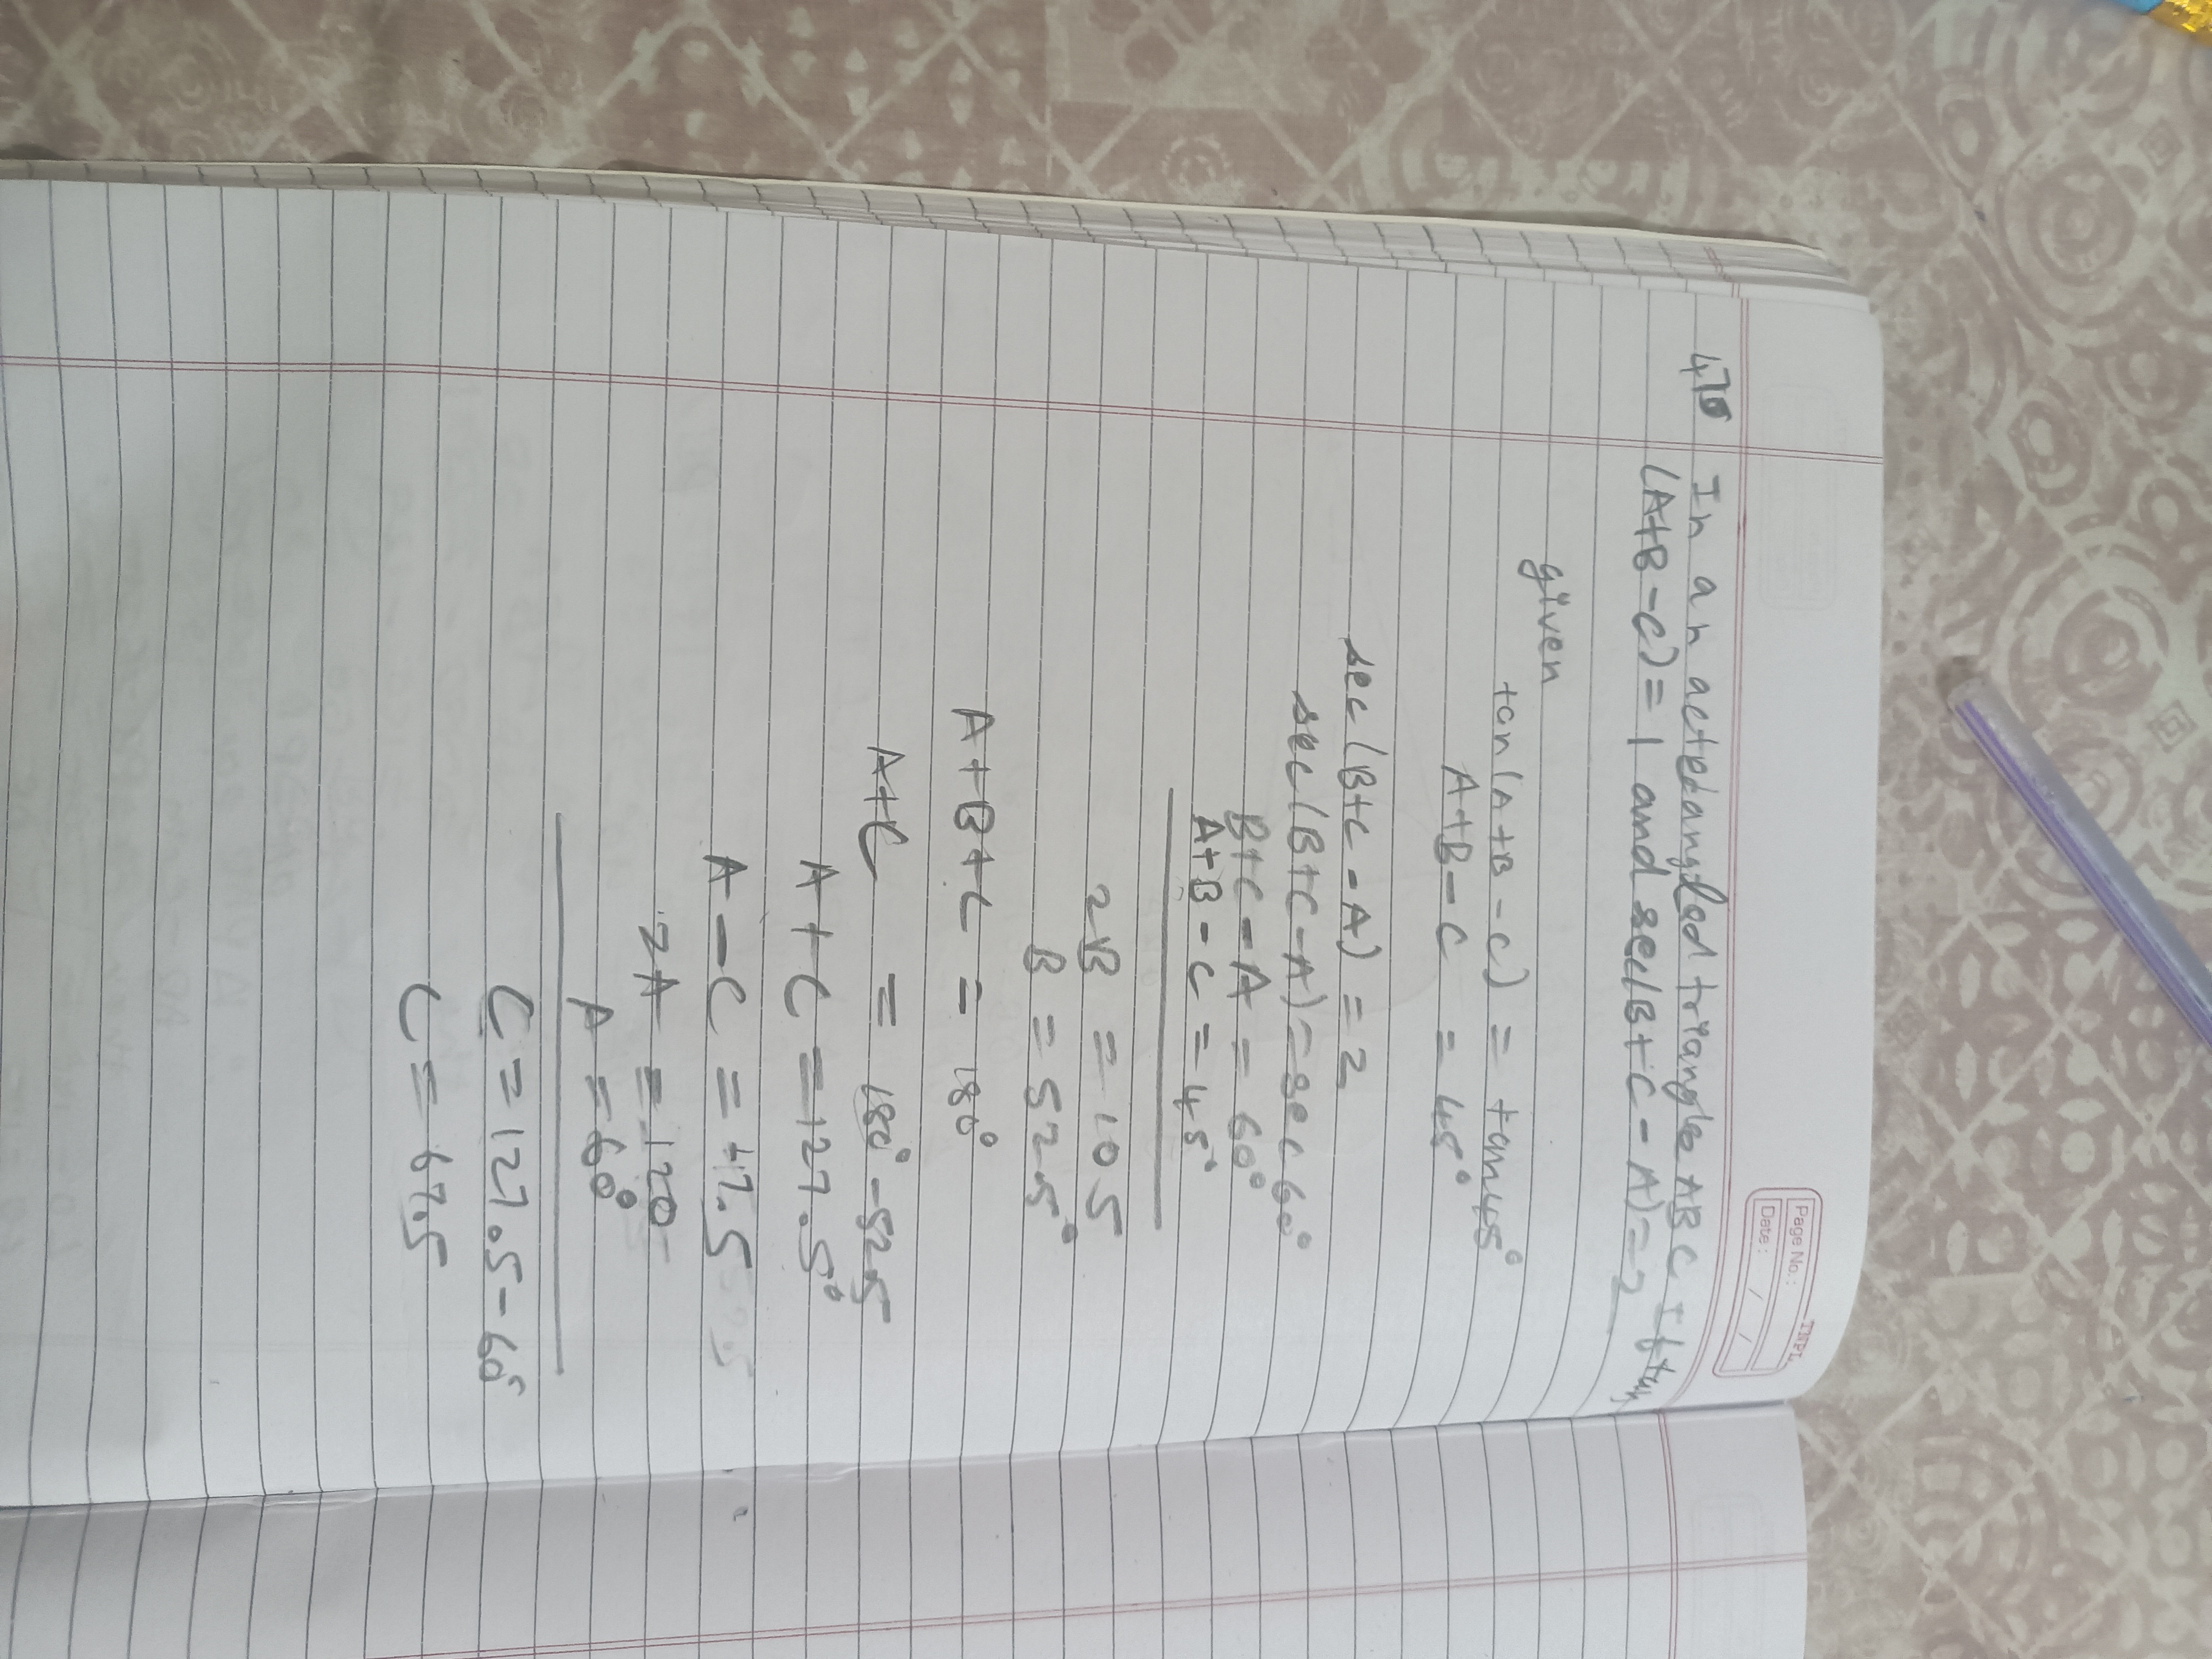 TNPL
Page No.:
Date: / /
47 In an actedangled triangle ABC If tan
(A+B-C)=1 and sec(B+C-A)=2
given
tan(A+B-C) = tan45°
A+B-C = 45°
sec(B+C-A) = 2
sec(B+C-A) = sec60°
B+C-A = 60°
A+B-C = 45°
2B = 105
B = 52.5°
A+B+C = 180°
A+C = 180°-52.5
A+C = 127.5°
A-C = 47.5
2A = 120
A = 60°
C = 127.5-60°
C = 67.5